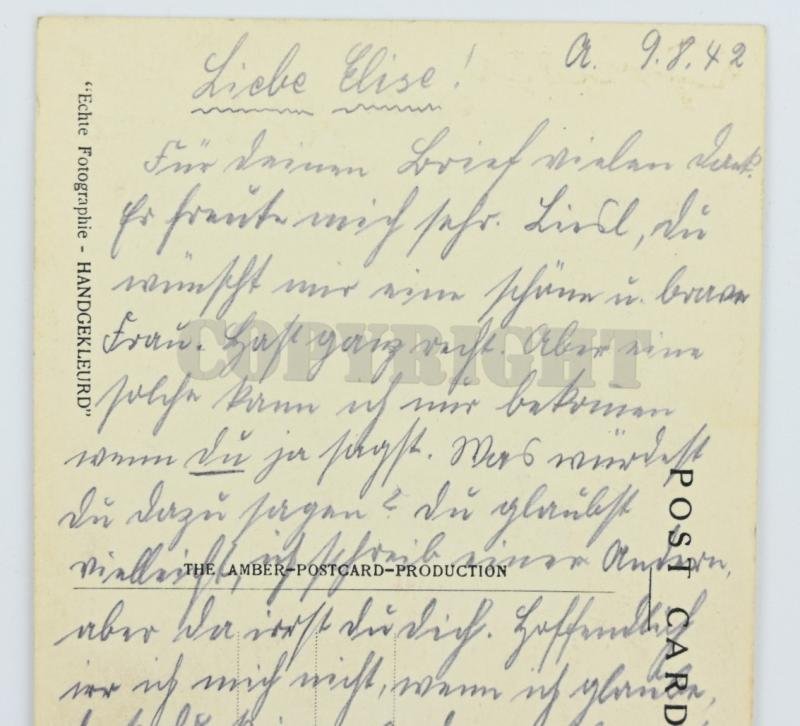 A. 9.8.42
Liebe Elise!
Für deinen Brief vielen Dank.
Er freute mich sehr. Liesl, du
wünscht mir eine schöne u. brave
Frau. Hast ganz recht. Aber eine
solche kann ich nur bekomen
wenn du ja sagst. Was würdest
du dazu sagen? Du glaubst
vielleicht, ich schreib einer Andern,
aber da irrst du dich. Hoffendlich
irr ich mich nicht, wenn ich glaube,
"Echte Fotographie - HANDGEKLEURD"
THE AMBER-POSTCARD-PRODUCTION
POST CARD
COPYRIGHT